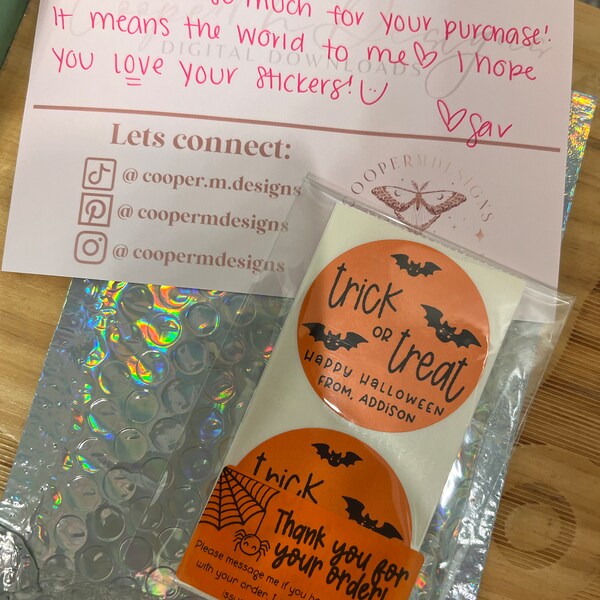 so much for your purchase!
It means the world to me♡ I hope
DIGITAL DOWNLOADS
you love your stickers! ☺
♡ Sav
Lets connect:
@ cooper.m.designs
@ coopermdesigns
@ coopermdesigns
COOPERMDESIGNS
trick
OR
treat
HAPPY HALLOWEEN
FROM, ADDISON
trick
Thank you for
your order!
Please message me if you
with your order.